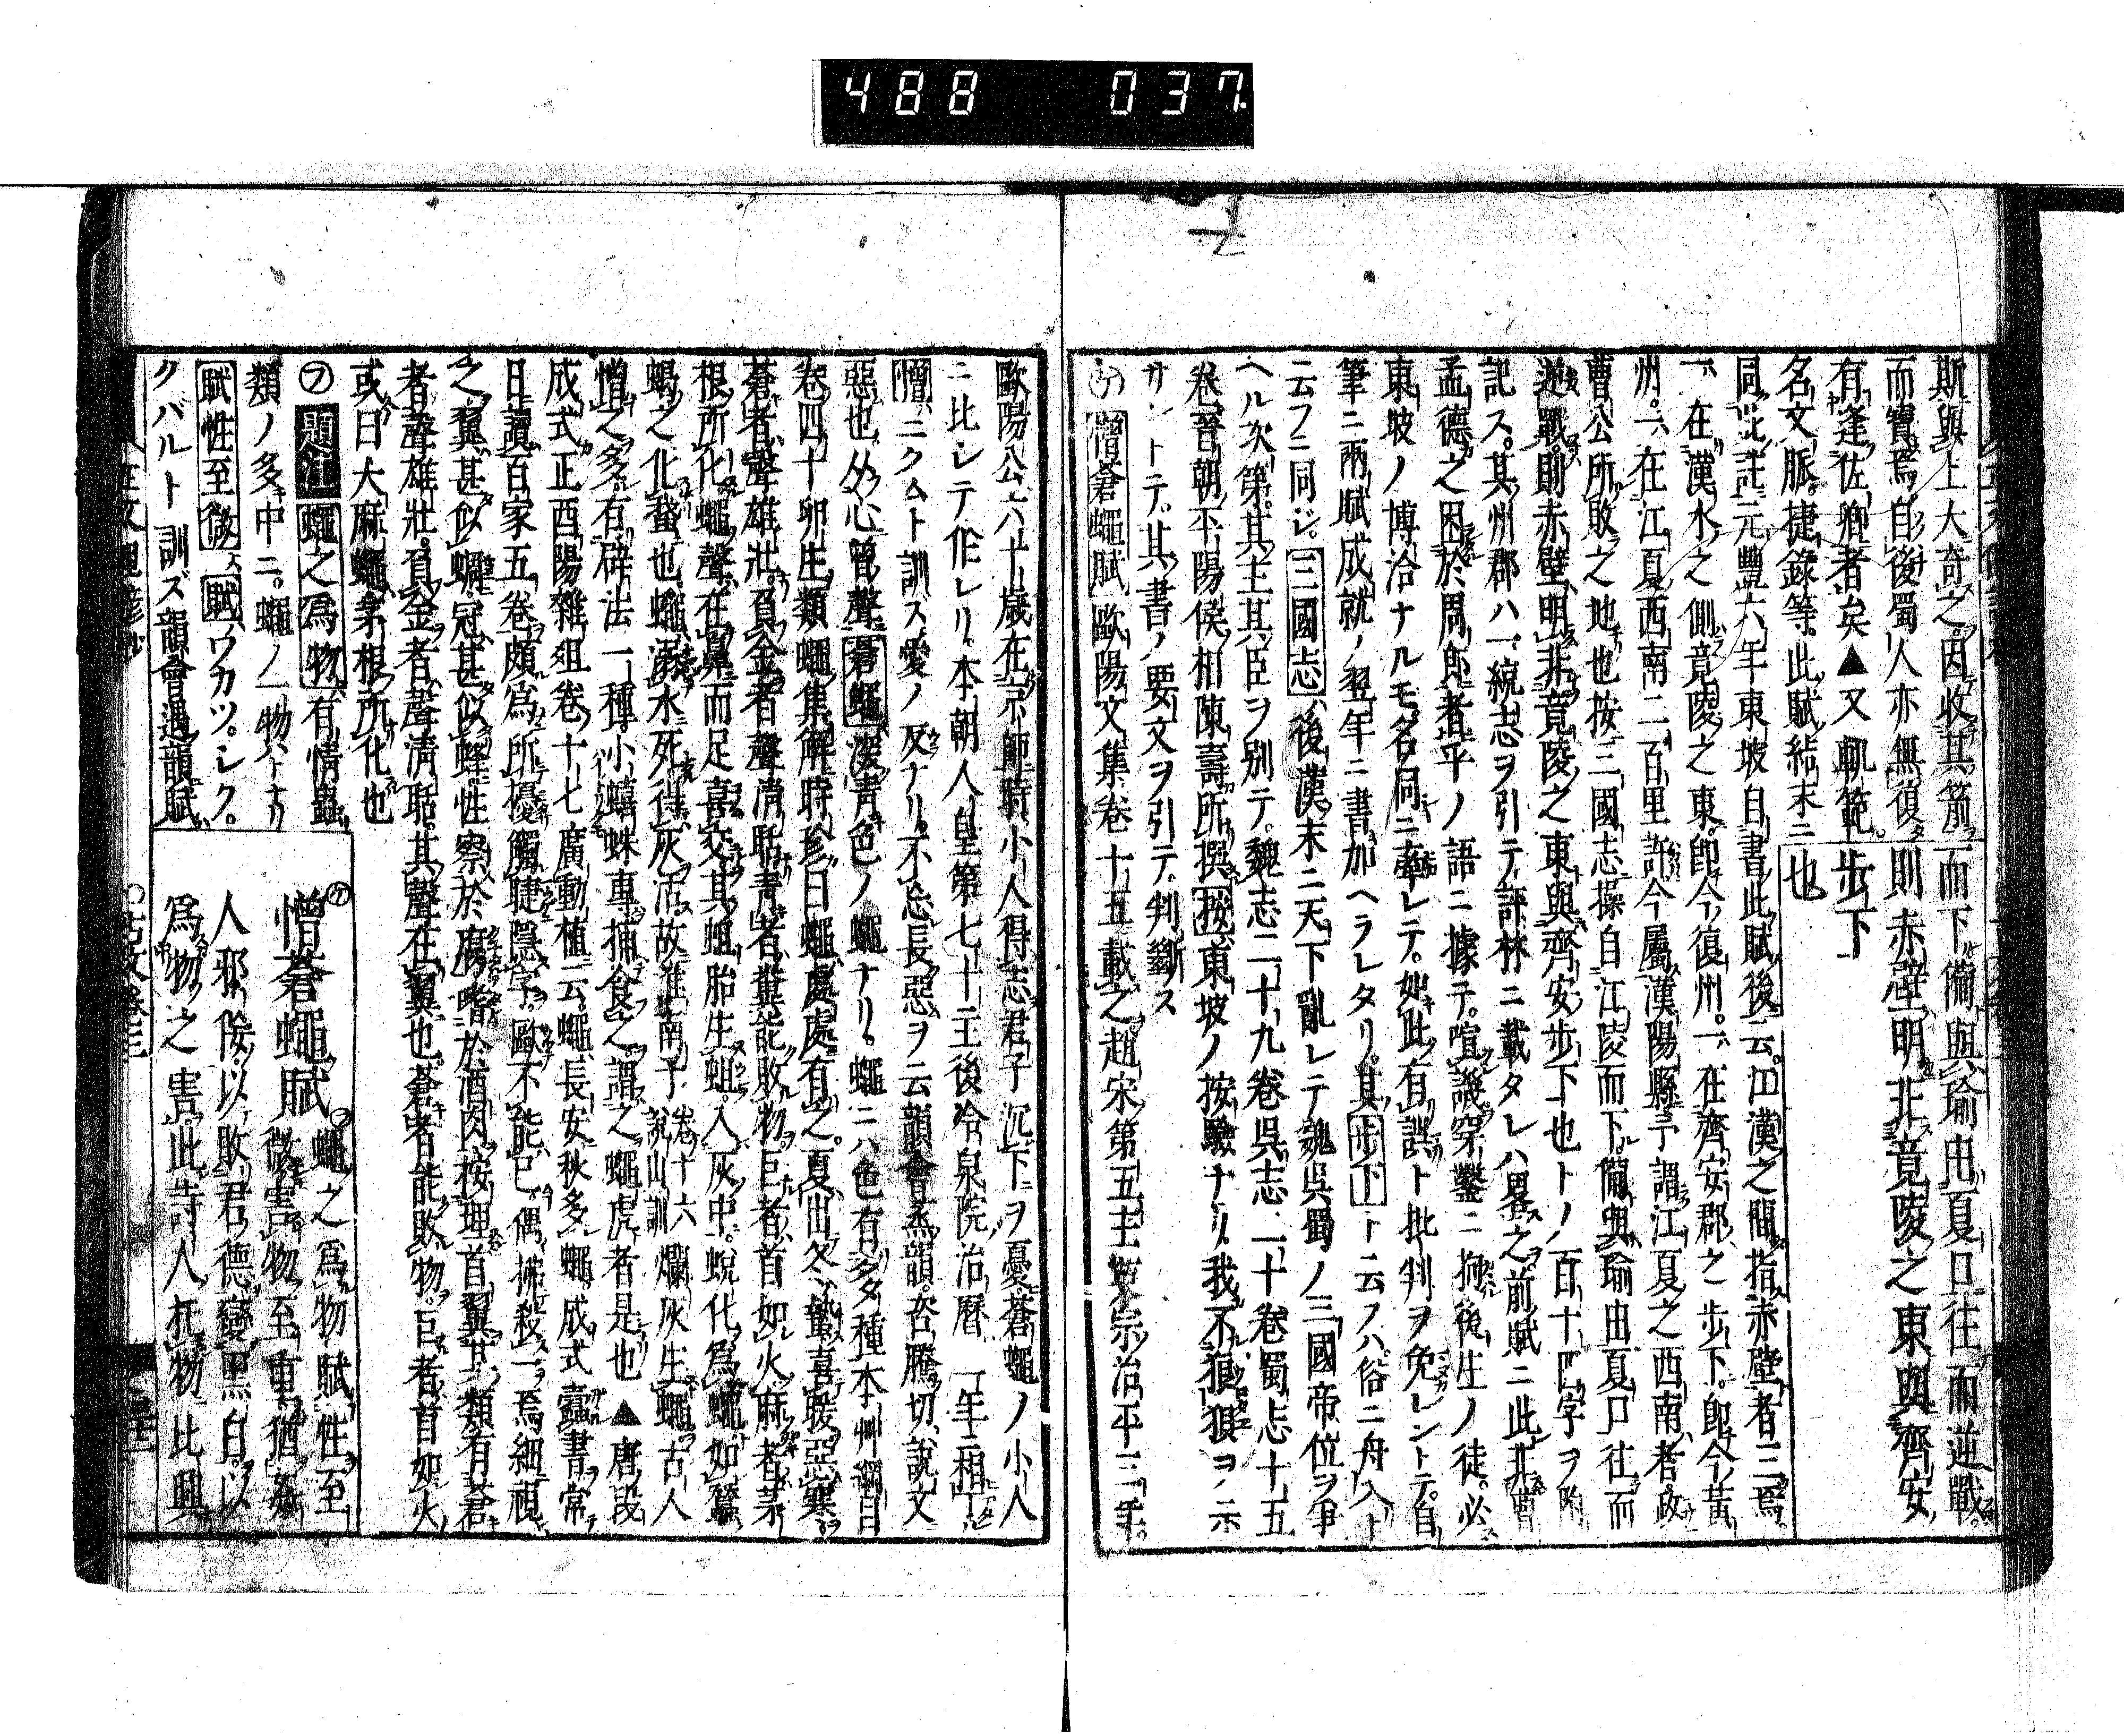 488 037
斯與上大奇之因收其箭
而實焉自後蜀人亦無復
有逢佐卿者矣▲又軌範
名文脈捷錄等此賦結末ニ
而下備與瑜由夏口往而逆戰
則赤壁明非竟陵之東與齊安
步下
也
同此註元豐六年東坡自書此賦後云江漢之間指赤壁者三焉
一在漢水之側竟陵之東卽今復州一在齊安郡之步下卽今黃
州一在江夏西南二百里許今屬漢陽縣予謂江夏之西南者政
曹公所敗之地也按三國志操自江陵而下備與瑜由夏口往而
逆戰則赤壁明非竟陵之東與齊安步下也トノ百十四字ヲ附
記ス其州郡ハ一統志ヲ引テ評林ニ載タレハ畧之前賦ニ此非曹
孟德之困於周郎者乎ノ語ニ據テ喧譏穿鑿ニ拘後生ノ徒必
東坡ノ博洽ナルモ名同ニ牽レテ如此有誤ト批判ヲ免レントテ自
筆ニ兩賦成就ノ翌年ニ書加ヘラレタリ其步下ト云フハ俗ニ舟入ト
ニ云フニ同シ三國志後漢末ニ天下亂レテ魏吳蜀ノ三國帝位ヲ爭
ヘル次第其主其臣ヲ別テ魏志二十九卷吳志二十卷蜀志十五
卷晉朝平陽侯相陳壽所撰按東坡ノ按驗ナリ我不狼狽ヲ示
サントテ其書ノ要文ヲ引テ判斷ス
憎蒼蠅賦歐陽文集卷十五載之趙宋第五主英宗治平三年
歐陽公六十歲在京師時小人得志君子沉下ヲ憂蒼蠅ノ小人
ニ比シテ作レリ本朝人皇第七十主後冷泉院治曆二年ニ相
憎ニクムト訓ス愛ノ反ナリ不忘長惡ヲ云韻會蒸韻咨騰切說文
惡也从心曾聲蒼蠅深青色ノ蠅ナリ蠅ニハ色有多種本艸綱目
卷四十卵生類蠅集解時珍曰蠅處處有之夏出冬蟄喜暖惡寒
蒼者聲雄壯負金者聲清聒青者糞能敗物巨者首如火麻者茅
根所化蠅聲在鼻而足喜交其蛆胎生蛆入灰中蛻化爲蠅如蠶
蝎之化蛾也蠅溺水死得灰活故淮南子卷十六說山訓爛灰生蠅古人
憎之多有辟法一種小蟢蛛專捕食之謂之蠅虎者是也▲唐段
成式正酉陽雜俎卷十七廣動植云蠅長安秋多蠅成式蠹書常
日讀百家五卷頗爲所擾觸睫隱字歐不能已偶拂殺一焉細視
之翼甚似蜩冠甚似蜂性察於腐嗜於酒肉按理首翼其類有蒼
者聲雄壯負金者聲清聒其聲在翼也蒼者能敗物巨者首如火
或曰大麻蠅茅根所化也
㋫題註蠅之爲物有情蟲
類ノ多キ中ニ蠅ノ一物ト
賦性至微賦ウカツシク
クバルト訓ズ韻會遇韻賦
憎蒼蠅賦
蠅之爲物賦性至
微害物至重猶姦
人邪佞以敗君德變黑白以
爲物之害此詩人托物比興